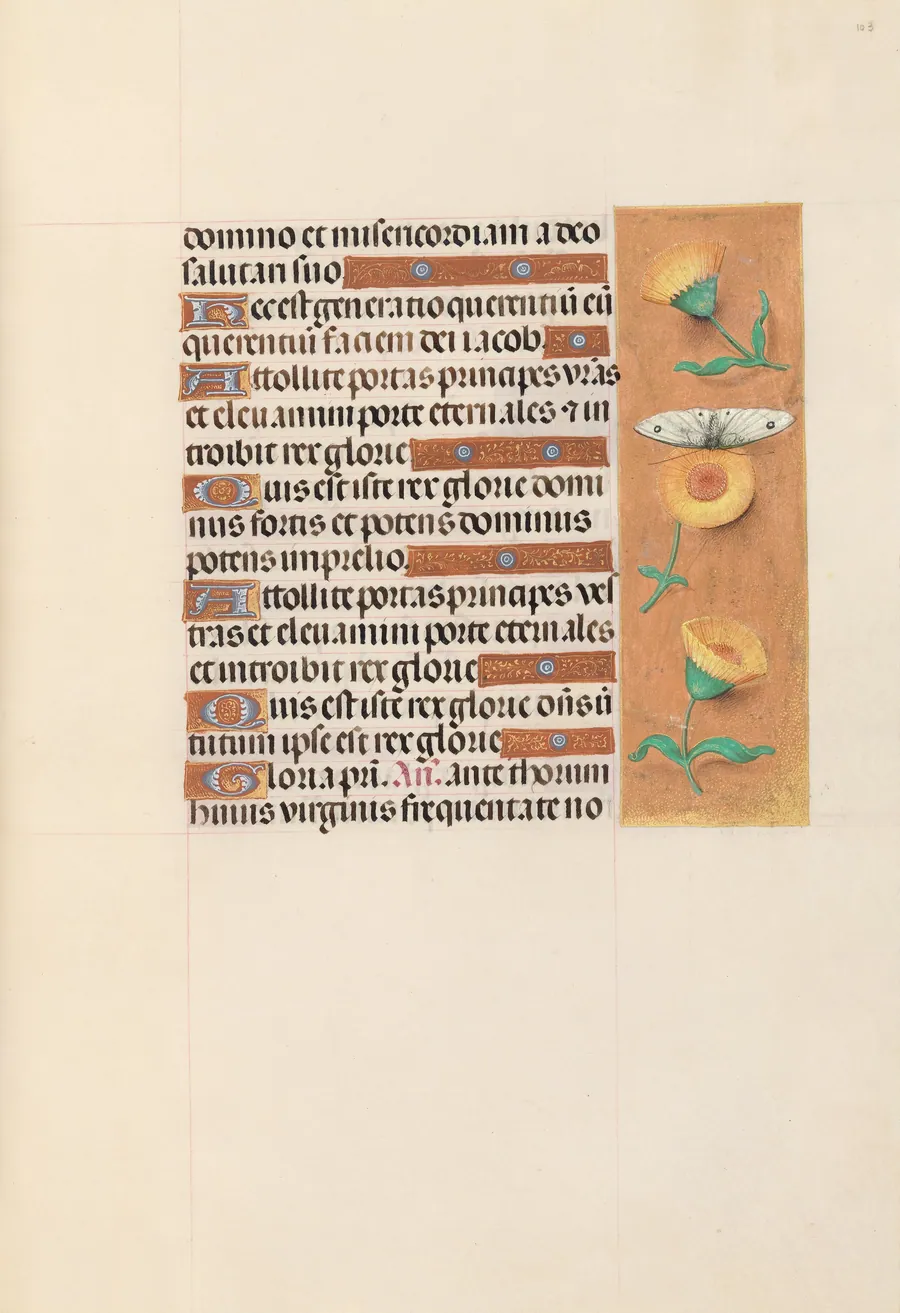 103
domino et misericordiam a deo
salutari suo
Hec est generatio querentiū eū
querentiū faciem dei iacob.
Attollite portas principes vrās
et eleuamini porte eternales ⁊ in
troibit rex glorie
Quis est iste rex glorie domi
nus fortis et potens dominus
potens in prelio.
Attollite portas principes ves
tras et eleuamini porte eternales
et introibit rex glorie
Quis est iste rex glorie dn̄s ū
tutum ipse est rex glorie
Gloria pr̄i. An̄. ante thorum
huius virginis frequentate no